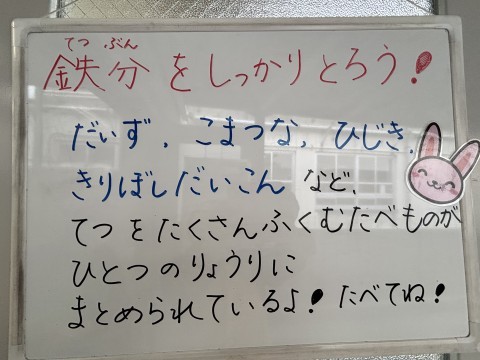 てつ ぶん
鉄分をしっかりとろう!
だいず、こまつな、ひじき、
きりぼしだいこん など、
てつをたくさんふくむたべものが
ひとつのりょうりに
まとめられているよ! たべてね!